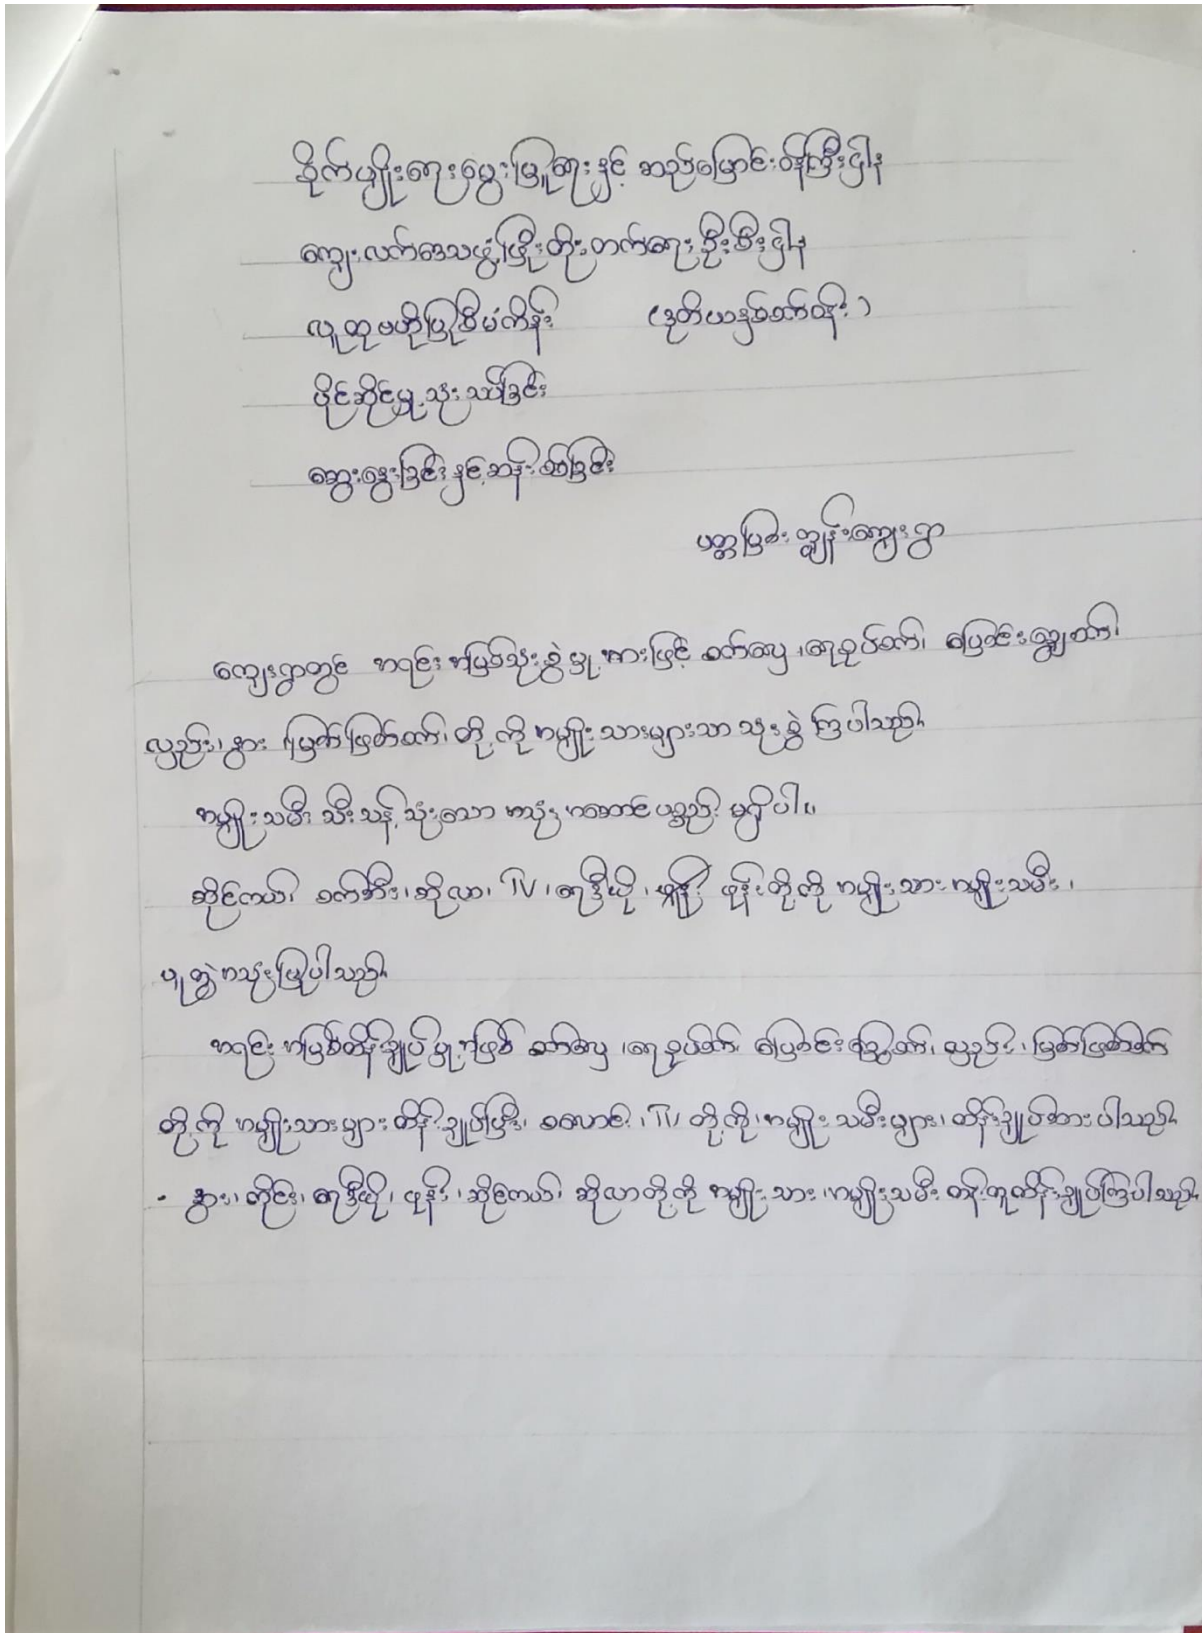 စိုက်ပျိုးရေးမွေးမြူရေးနှင့် ဆည်မြောင်းဝန်ကြီးဌာန
ကျေးလက်ဒေသဖွံ့ဖြိုးတိုးတက်ရေးဦးစီးဌာန
လူထုဗဟိုပြုစီမံကိန်း (ဒုတိယနှစ်စက်ဝန်း)
ပိုင်ဆိုင်မှု့သုံးသပ်ခြင်း
ဆွေးနွေးခြင်းနှင့်ဆန်းစစ်ခြင်း
ပတ္တမြားကျွန်းကျေးရွာ
ကျေးရွာတွင် အရင်းအမြစ်သုံးစွဲမှု့အားဖြင့် စက်လှေ၊ ရေစုပ်စက်၊ ပြောင်းချွေစက်၊
လှည်း၊ နွား၊ မြက်ဖြတ်စက်၊ တို့ကို အမျိုးသားများသာ သုံးစွဲကြပါသည်။
အမျိုးသမီး သီးသန့်သုံးသော အသုံးအဆောင်ပစ္စည်း မရှိပါ။
ဆိုင်ကယ်၊ စက်ဘီး၊ ဆိုလာ၊ TV ၊ ရေဒီယို၊ ဖုန်းတို့ကို အမျိုးသား အမျိုးသမီး၊
ပူးတွဲအသုံးပြုပါသည်။
အရင်းအမြစ်ထိန်းချုပ်မှု့အဖြစ် စက်လှေ၊ ရေစုပ်စက်၊ ပြောင်းခြွေစက်၊ လှည်း၊ မြက်ဖြတ်စက်
တို့ကို အမျိုးသားများထိန်းချုပ်ပြီး၊ စလောင်း၊ TV တို့ကို၊ အမျိုးသမီးများ၊ ထိန်းချုပ်ထားပါသည်။
• နွား၊ ရေဒီယို၊ ဖုန်း၊ ဆိုင်ကယ်၊ ဆိုလာတို့ကို အမျိုးသား၊ အမျိုးသမီး တန်းတူထိန်းချုပ်ကြပါသည်။